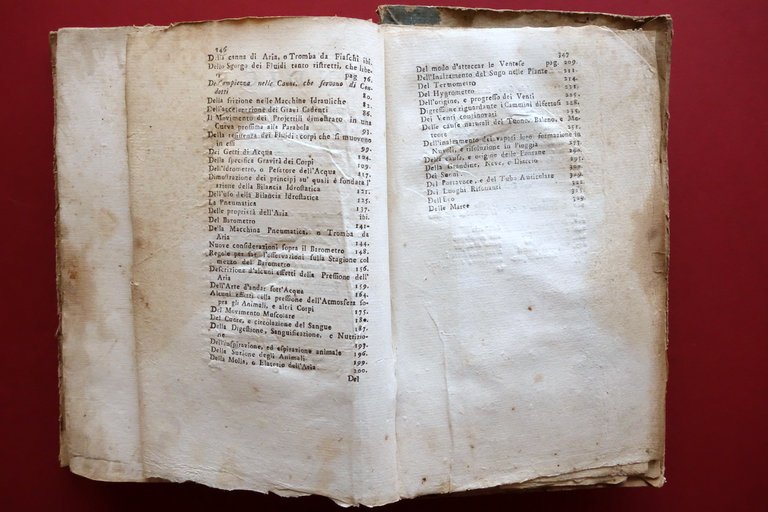 346
Della canna di Aria, o Tromba da Fiaschi ibi.
Dello Sgorgo dei Fluidi tanto ristretti, che libe-
pag 76.
nelle Canne, che servono di Con-
dotti 80.
Della frizione nelle Macchine Idrauliche 82.
Dell'accelerazione dei Gravi Cadenti 86.
Il Movimento dei Projettili dimostrato in una
Curva prossima alla Parabola 93.
Della resistenza dei Fluidi: corpi che si muovono
in essi 99.
Dei Getti di Acqua 104.
Della specifica Gravità dei Corpi 109.
Dell'idrometro, o Pesatore dell'Acqua 117.
Dimostrazione dei principj su' quali è fondata l'
azione della Bilancia Idrostatica 121.
Dell'uso della Bilancia Idrostatica 125.
La Pneumatica 137.
Delle proprietà dell'Aria ibi.
Del Barometro 141.
Della Macchina Pneumatica, o Tromba da
Aria 144.
Nuove considerazioni sopra il Barometro 148.
Regole per far l'osservazioni sulla Stagione col
mezzo del Barometro 156.
Descrizione d'alcuni effetti della Pressione dell'
Aria 159.
Dell'Arte d'andar sott'Acqua 164.
Alcuni effetti della pressione dell'Atmosfera so-
pra gli Animali, e altri Corpi 175.
Del Movimento Muscolare 180.
Del Cuore, e circolazione del Sangue 187.
Della Digestione, Sanguificazione, e Nutrizio-
ne 193.
Dell'inspirazione, ed espirazione animale 196.
Della Suzione degli Animali 199.
Della Molla, o Elaterio dell'Aria 200.
Del
347
Del modo d'attaccar le Ventose pag. 209.
Dell'Inalzamento del Sugo nelle Piante 211.
Del Termometro 214.
Del Hygrometro
Dell'origine, e progresso dei Venti
Digressione riguardante i Cammini difettosi
Dei Venti continovati
Delle cause naturali dei Tuono, Baleno, e Me-
teore
Dell'inalzamento dei vapori loro formazione in
Nuvoli, e risoluzione in Pioggia
Della causa, e origine delle Fontane
Della Grandine, Neve, e Diaccio 295.
Dei Suoni
Del Portavoce, e del Tubo Auticulare
Dei Luoghi Risonanti
Dell'Eco
Delle Maree